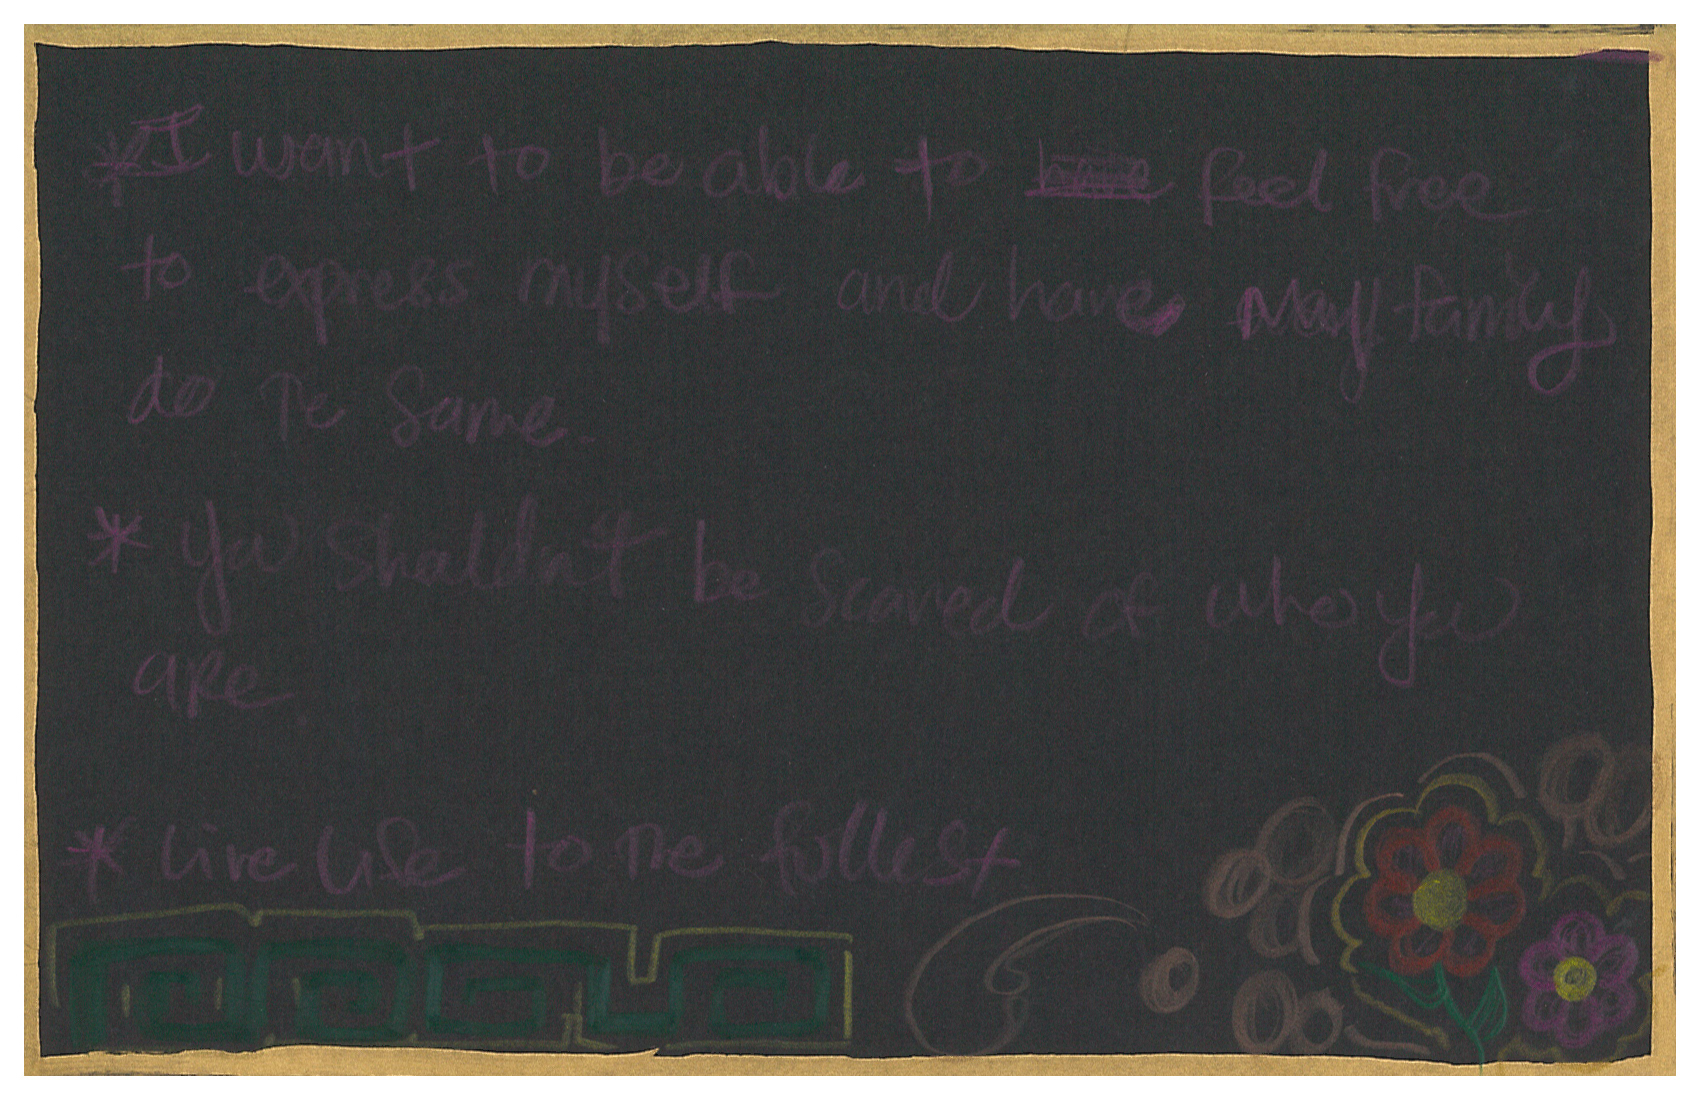 * I want to be able to feel free
to express myself and have My family
do the same.
* You shouldn't be scared of who you
are.
* Live life to the fullest